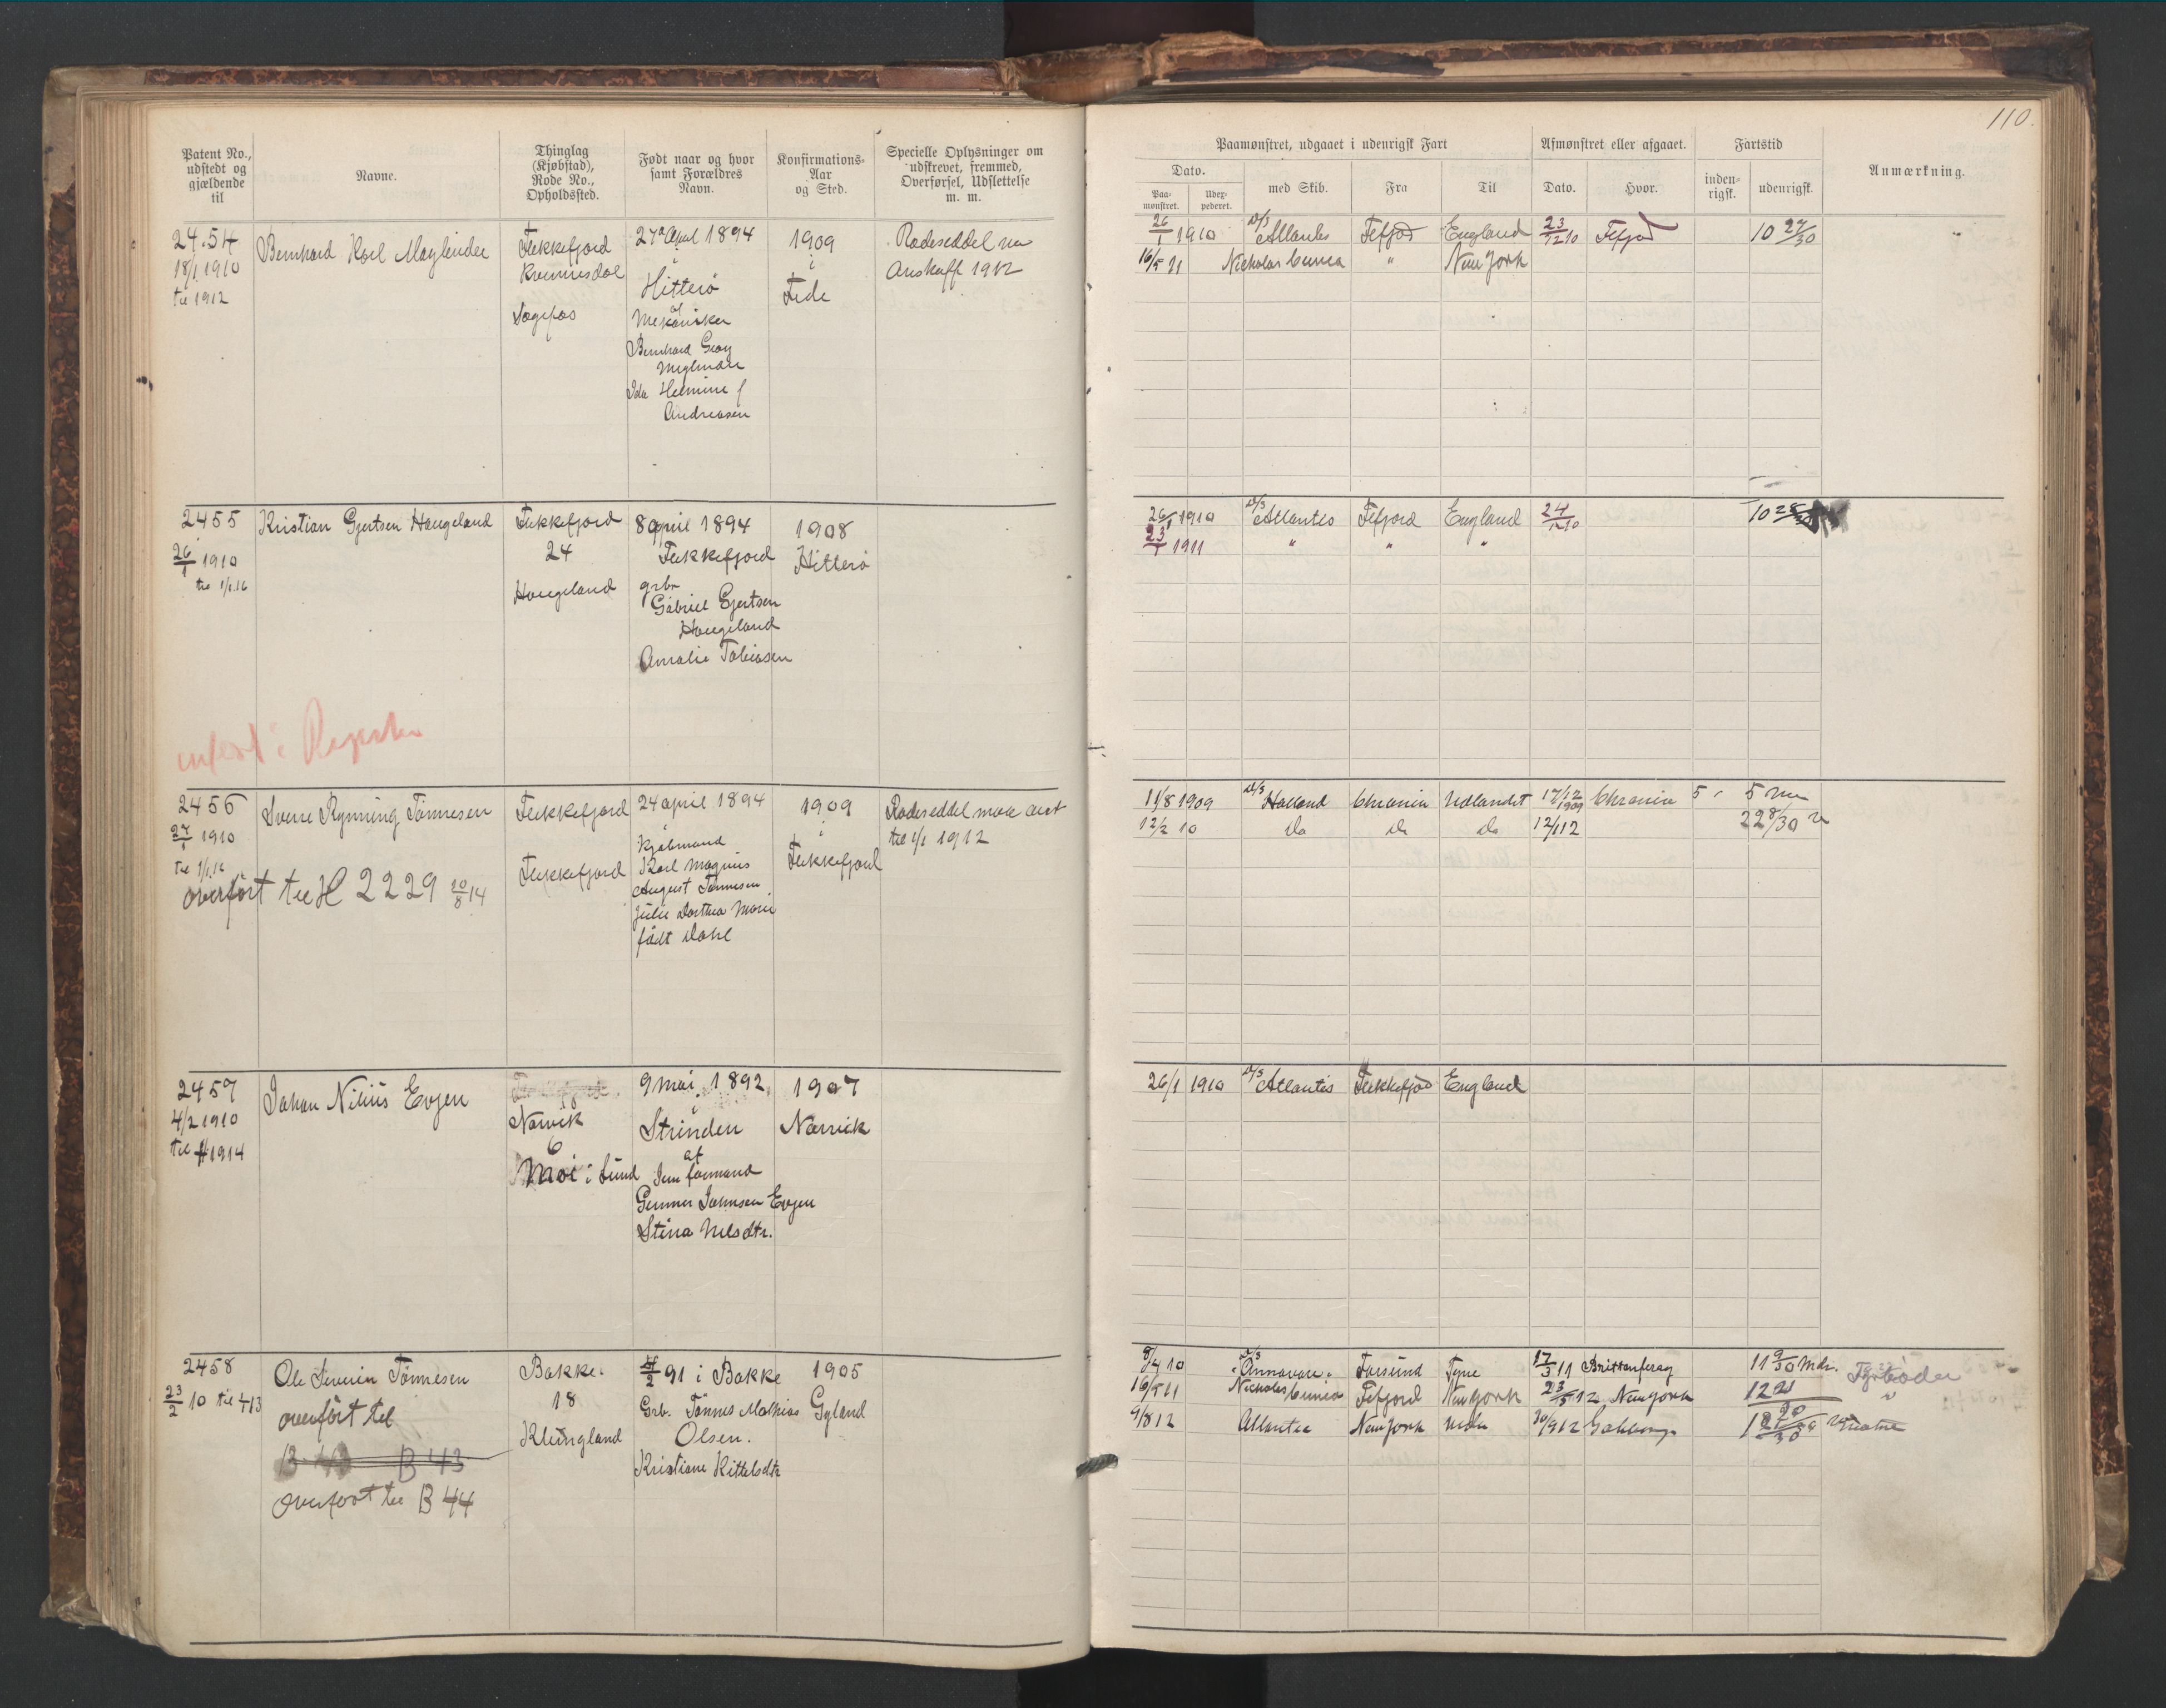 110.
Patent No., udstedt og gjældende til
Navne.
Thinglag (Kjøbstad), Rode No., Opholdssted.
Født naar og hvor samt Forældres Navn.
Konfirmations-Aar og Sted.
Specielle Oplysninger om udskrevet, fremmed, Overførsel, Udslettelse m. m.
Paamønstret, udgaaet i udenrigsk Fart
Afmønstret eller afgaaet.
Fartstid
Anmærkning.
Dato.
Paa-mønstret.
Udex-pederet.
med Skib.
Fra
Til
Dato.
Hvor.
inden-rigsk.
udenrigsk.
2454
18/1 1910
til 1912
Bernhard Karl
Flekkefjord
Kvinnesdal
27 April 1894
i
Hitterø
af
Mekaniker
Bernhard Georg
Ida Helmine f
Andreasen
1909
i
Fede
Rodeseddel
1912
26/1 1910 D/S Atlantis Fefjord England 23/12 10 Fefjord 10 27/30
16/5 11 Nicholas Cuneo " New York
2455
26/1 1910
til 1/1.16
Kristian Gjertsen Haugeland
Flekkefjord
24
Haugeland
8 april 1894
Flekkefjord
grbr
Gabriel Gjertsen
Haugeland
Amalie Tobiasen
1908
Hitterø
26/1 1910 D/S Atlantis Fefjord England 24/12 10 10 28
23/1 1911 " " "
i Register
2456
27/1 1910
til 1/1.16
Sverre Rynning Tønnesen
overført til H 2229 20/8 14
Flekkefjord
Flekkefjord
24 april 1894
i
Kjøbmand
Karl Magnus
August Tønnesen
Julie Dorthea Marie
født Dahl
1909
i
Flekkefjord
Rodeseddel
til 1/1 1912
11/8 1909 D/S Haaland Chrania Udlandet 17/12 1909 Chrania 5 5
12/2 10 Do Do Do 12/1 12 22 8/30
2457
4/2 1910
til 1914
Johan Nilius Evjen
Narvik
6
Moi i Lund
9 mai 1892
i
Strinden
af
Formand
Gunner Johnsen Evjen
Stina Nilsdtr.
1907
Narvik
26/1 1910 D/S Atlantis Flekkefjord England
2458
23/2 10 til 413
Ole Severin Tønnesen
overført til
B 43
overført til B 44
Bakke.
18
Klungland
91 i Bakke
Grb. Tønnes Mathias
Olsen.
Kristiane Kittelsdtr
1905
Gyland
8/4 10 D/S Farsund Tyne 17/3 11 11 9/30 Mdr. Fyrbøder
16/5 11 Nicholas Cuneo Fefjord New York 23/5 12 New York
9/8 12 Atlantis New York 30/9 12